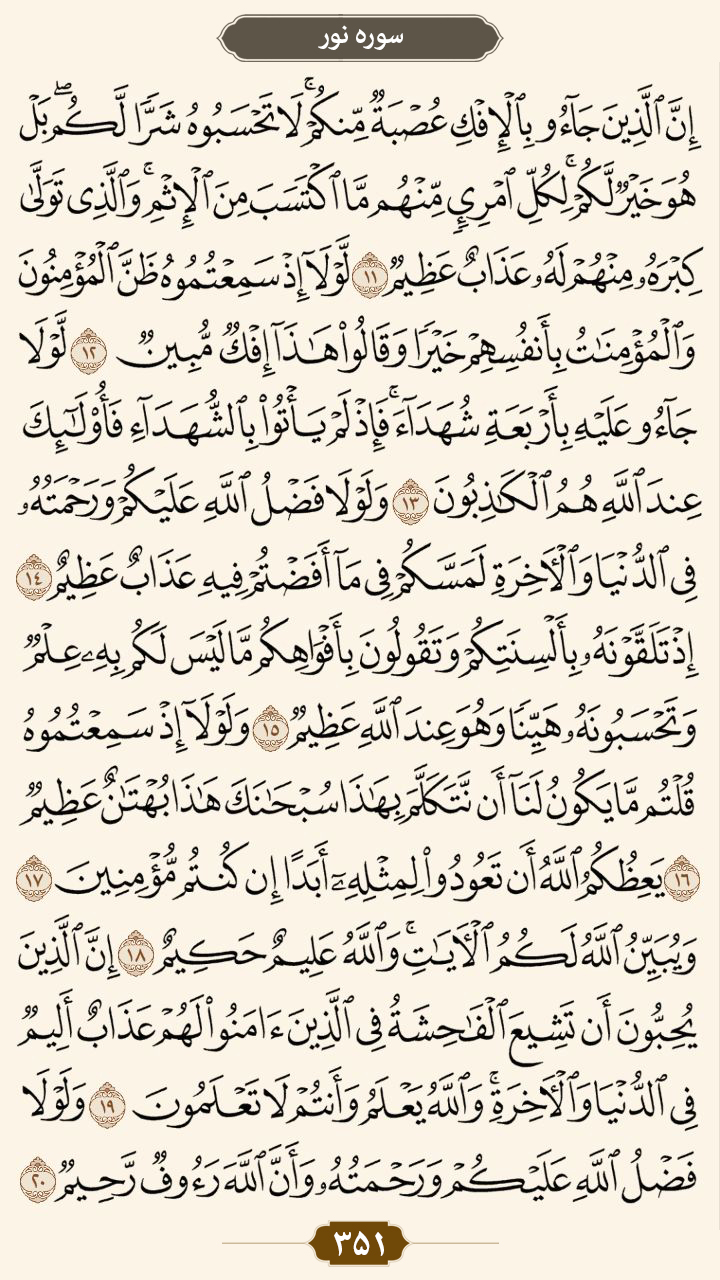 سوره نور
إِنَّ ٱلَّذِينَ جَآءُو بِٱلْإِفْكِ عُصْبَةٌ مِّنكُمْ ۚ لَا تَحْسَبُوهُ شَرًّا لَّكُم ۖ بَلْ
هُوَ خَيْرٌ لَّكُمْ ۚ لِكُلِّ ٱمْرِئٍ مِّنْهُم مَّا ٱكْتَسَبَ مِنَ ٱلْإِثْمِ ۚ وَٱلَّذِى تَوَلَّىٰ
كِبْرَهُۥ مِنْهُمْ لَهُۥ عَذَابٌ عَظِيمٌ ١١ لَّوْلَآ إِذْ سَمِعْتُمُوهُ ظَنَّ ٱلْمُؤْمِنُونَ
وَٱلْمُؤْمِنَٰتُ بِأَنفُسِهِمْ خَيْرًا وَقَالُوا۟ هَٰذَآ إِفْكٌ مُّبِينٌ ١٢ لَّوْلَا
جَآءُو عَلَيْهِ بِأَرْبَعَةِ شُهَدَآءَ ۚ فَإِذْ لَمْ يَأْتُوا۟ بِٱلشُّهَدَآءِ فَأُو۟لَٰٓئِكَ
عِندَ ٱللَّهِ هُمُ ٱلْكَٰذِبُونَ ١٣ وَلَوْلَا فَضْلُ ٱللَّهِ عَلَيْكُمْ وَرَحْمَتُهُۥ
فِى ٱلدُّنْيَا وَٱلْءَاخِرَةِ لَمَسَّكُمْ فِى مَآ أَفَضْتُمْ فِيهِ عَذَابٌ عَظِيمٌ ١٤
إِذْ تَلَقَّوْنَهُۥ بِأَلْسِنَتِكُمْ وَتَقُولُونَ بِأَفْوَاهِكُم مَّا لَيْسَ لَكُم بِهِۦ عِلْمٌ
وَتَحْسَبُونَهُۥ هَيِّنًا وَهُوَ عِندَ ٱللَّهِ عَظِيمٌ ١٥ وَلَوْلَآ إِذْ سَمِعْتُمُوهُ
قُلْتُم مَّا يَكُونُ لَنَآ أَن نَّتَكَلَّمَ بِهَٰذَا سُبْحَٰنَكَ هَٰذَا بُهْتَٰنٌ عَظِيمٌ
١٦ يَعِظُكُمُ ٱللَّهُ أَن تَعُودُوا۟ لِمِثْلِهِۦٓ أَبَدًا إِن كُنتُم مُّؤْمِنِينَ ١٧
وَيُبَيِّنُ ٱللَّهُ لَكُمُ ٱلْءَايَٰتِ ۚ وَٱللَّهُ عَلِيمٌ حَكِيمٌ ١٨ إِنَّ ٱلَّذِينَ
يُحِبُّونَ أَن تَشِيعَ ٱلْفَٰحِشَةُ فِى ٱلَّذِينَ ءَامَنُوا۟ لَهُمْ عَذَابٌ أَلِيمٌ
فِى ٱلدُّنْيَا وَٱلْءَاخِرَةِ ۚ وَٱللَّهُ يَعْلَمُ وَأَنتُمْ لَا تَعْلَمُونَ ١٩ وَلَوْلَا
فَضْلُ ٱللَّهِ عَلَيْكُمْ وَرَحْمَتُهُۥ وَأَنَّ ٱللَّهَ رَءُوفٌ رَّحِيمٌ ٢٠
۳۵۱